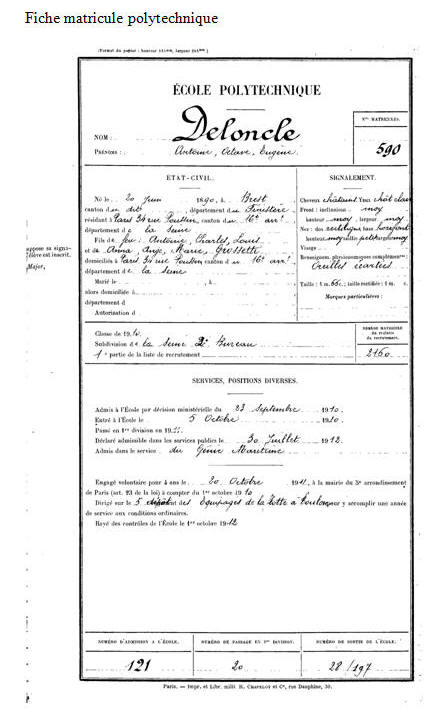 Fiche matricule polytechnique
(Format du papier : hauteur 31 , largeur 21 )
ÉCOLE POLYTECHNIQUE
Nos MATRICULES.
NOM : Deloncle
PRÉNOMS : Antoine, Octave, Eugène
590
ÉTAT-CIVIL.
SIGNALEMENT.
Né le 20 Juin 1890, à Brest
canton du dit, département du Finistère
résidant à Paris 34 rue canton du 16e arrt
département de la Seine
Fils de feu Antoine, Charles, Louis
et de Anna, Ange, Marie, Grossetti
domiciliés à Paris 34 rue canton du 16e arrt
département de la Seine
Marié le
alors domiciliée à
département d
Autorisation d
Cheveux châtains Yeux chât clair
Front : inclinaison moy
hauteur moy, largeur moy
Nez : dos rectiligne base
hauteur moy saillie petite largeur moy
Visage :
Renseignem. physionomiques complémentres :
Oreilles écartées
Taille : 1 m. 66c. ; taille rectifiée : 1 m. c.
Marques particulières :
suppose sa signa-
élève est inscrit.
Major,
Classe de 1910
Subdivision de la Seine 2e Bureau
1e partie de la liste de recrutement
NUMÉRO MATRICULE
du registre
du recrutement.
2160
SERVICES, POSITIONS DIVERSES.
Admis à l'École par décision ministérielle du 23 Septembre 1910
Entré à l'École le 5 Octobre 1910
Passé en 1re division en 1911
Déclaré admissible dans les services publics le 30 Juillet 1912
Admis dans le service du Génie Maritime
Engagé volontaire pour 4 ans le 20 Octobre 1911, à la mairie du 5e arrondissement
de Paris (art. 23 de la loi) à compter du 1er octobre 1910
Dirigé sur le 5 dépôt des Equipages de la Flotte à Toulon pour y accomplir une année
de service aux conditions ordinaires.
Rayé des contrôles de l'École le 1er octobre 1912
NUMÉRO D'ADMISSION A L'ÉCOLE.
NUMÉRO DE PASSAGE EN 1re DIVISION.
NUMÉRO DE SORTIE DE L'ÉCOLE.
121
20
28/197
Paris. — Impr. et Libr. milit. R. CHAPELOT et Ce, rue Dauphine, 30.